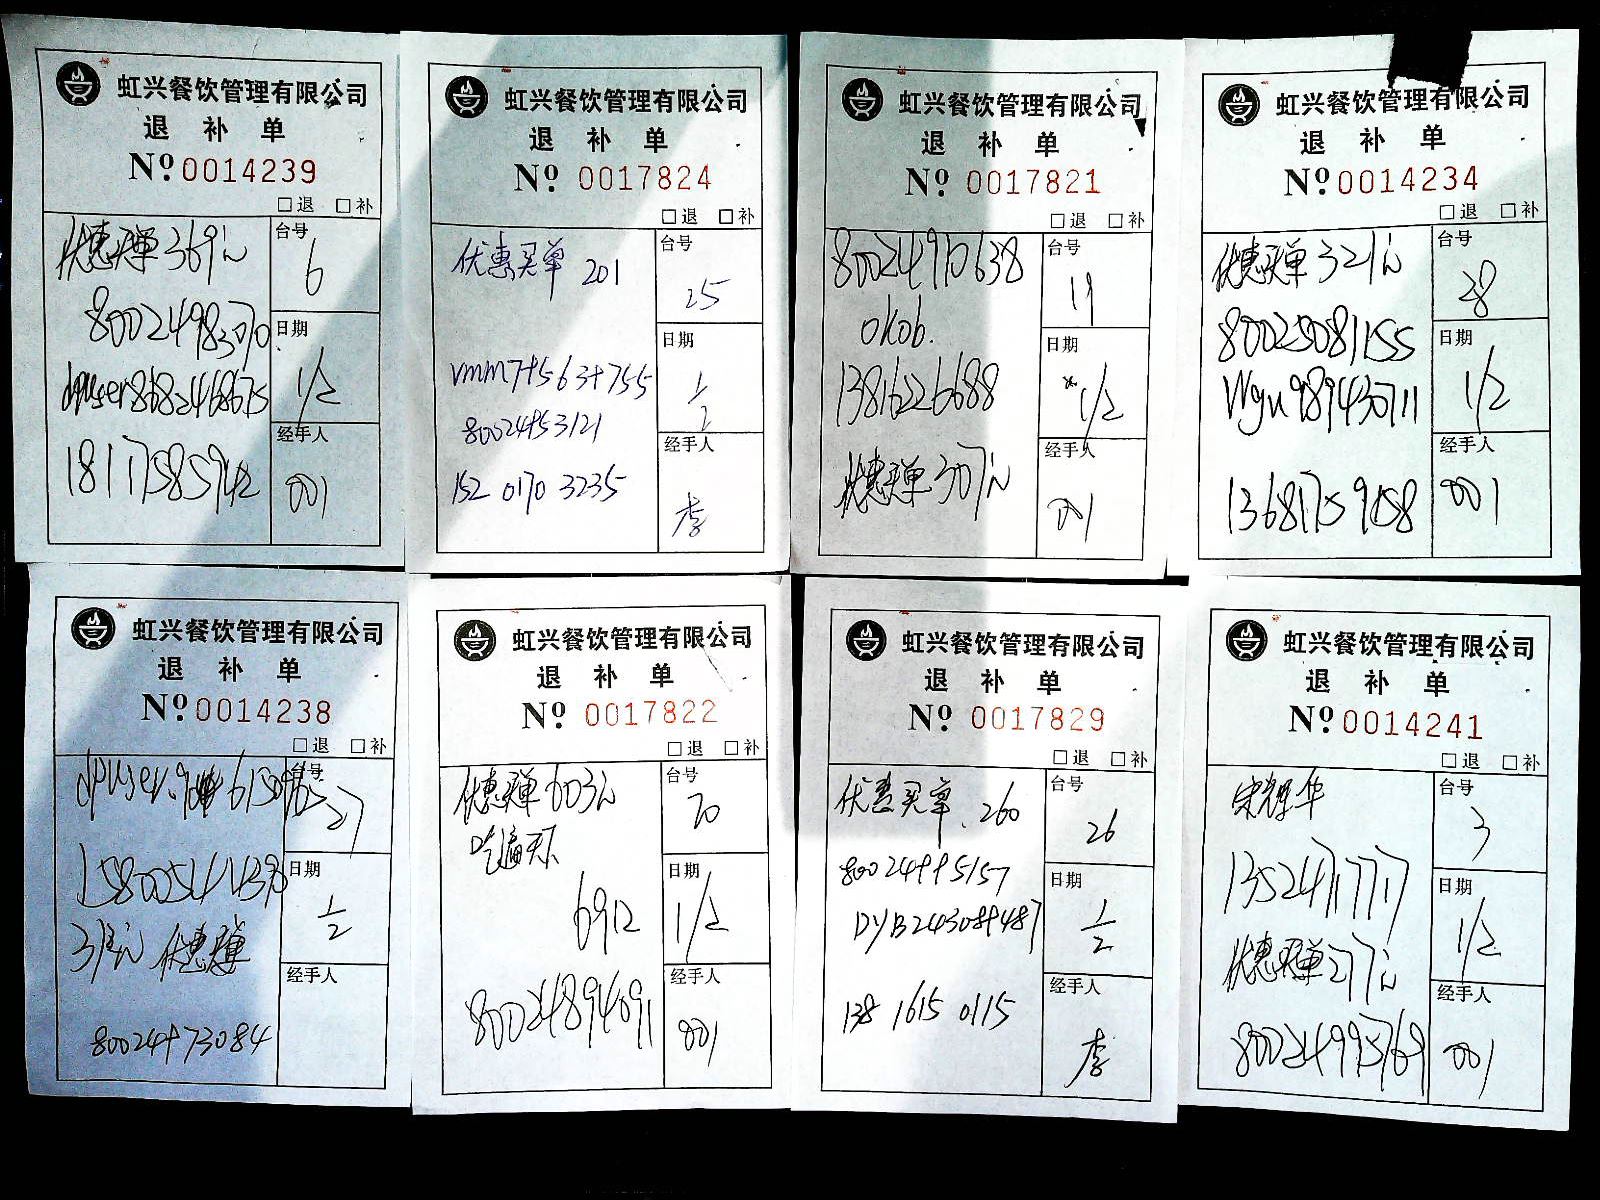 虹兴餐饮管理有限公司
退 补 单
Nº 0014239
□退 □补
优惠买单 369元
80024983070
dpuser8682468675
18117585942
台号
6
日期
1/2
经手人
001
虹兴餐饮管理有限公司
退 补 单
Nº 0017824
□退 □补
优惠买单 201
80024953121
152 0170 3235
台号
25
日期
1/2
经手人
李
虹兴餐饮管理有限公司
退 补 单
Nº 0017821
□退 □补
80024910638
okob.
13816226688
优惠买单 307元
台号
19
日期
1/2
经手人
001
虹兴餐饮管理有限公司
退 补 单
Nº 0014234
□退 □补
优惠买单 321元
80025081155
Wgu989430711
13681759158
台号
28
日期
1/2
经手人
001
虹兴餐饮管理有限公司
退 补 单
Nº 0014238
□退 □补
优惠买单
80024973084
台号
27
日期
1/2
经手人
虹兴餐饮管理有限公司
退 补 单
Nº 0017822
□退 □补
优惠买单 603元
吃遍天下
6912
80024894091
台号
20
日期
1/2
经手人
001
虹兴餐饮管理有限公司
退 补 单
Nº 0017829
□退 □补
优惠买单 260
80024995157
DYB2430894487
138 1615 0115
台号
26
日期
1/2
经手人
李
虹兴餐饮管理有限公司
退 补 单
Nº 0014241
□退 □补
13524717717
优惠买单 277元
80024995769
台号
3
日期
1/2
经手人
001